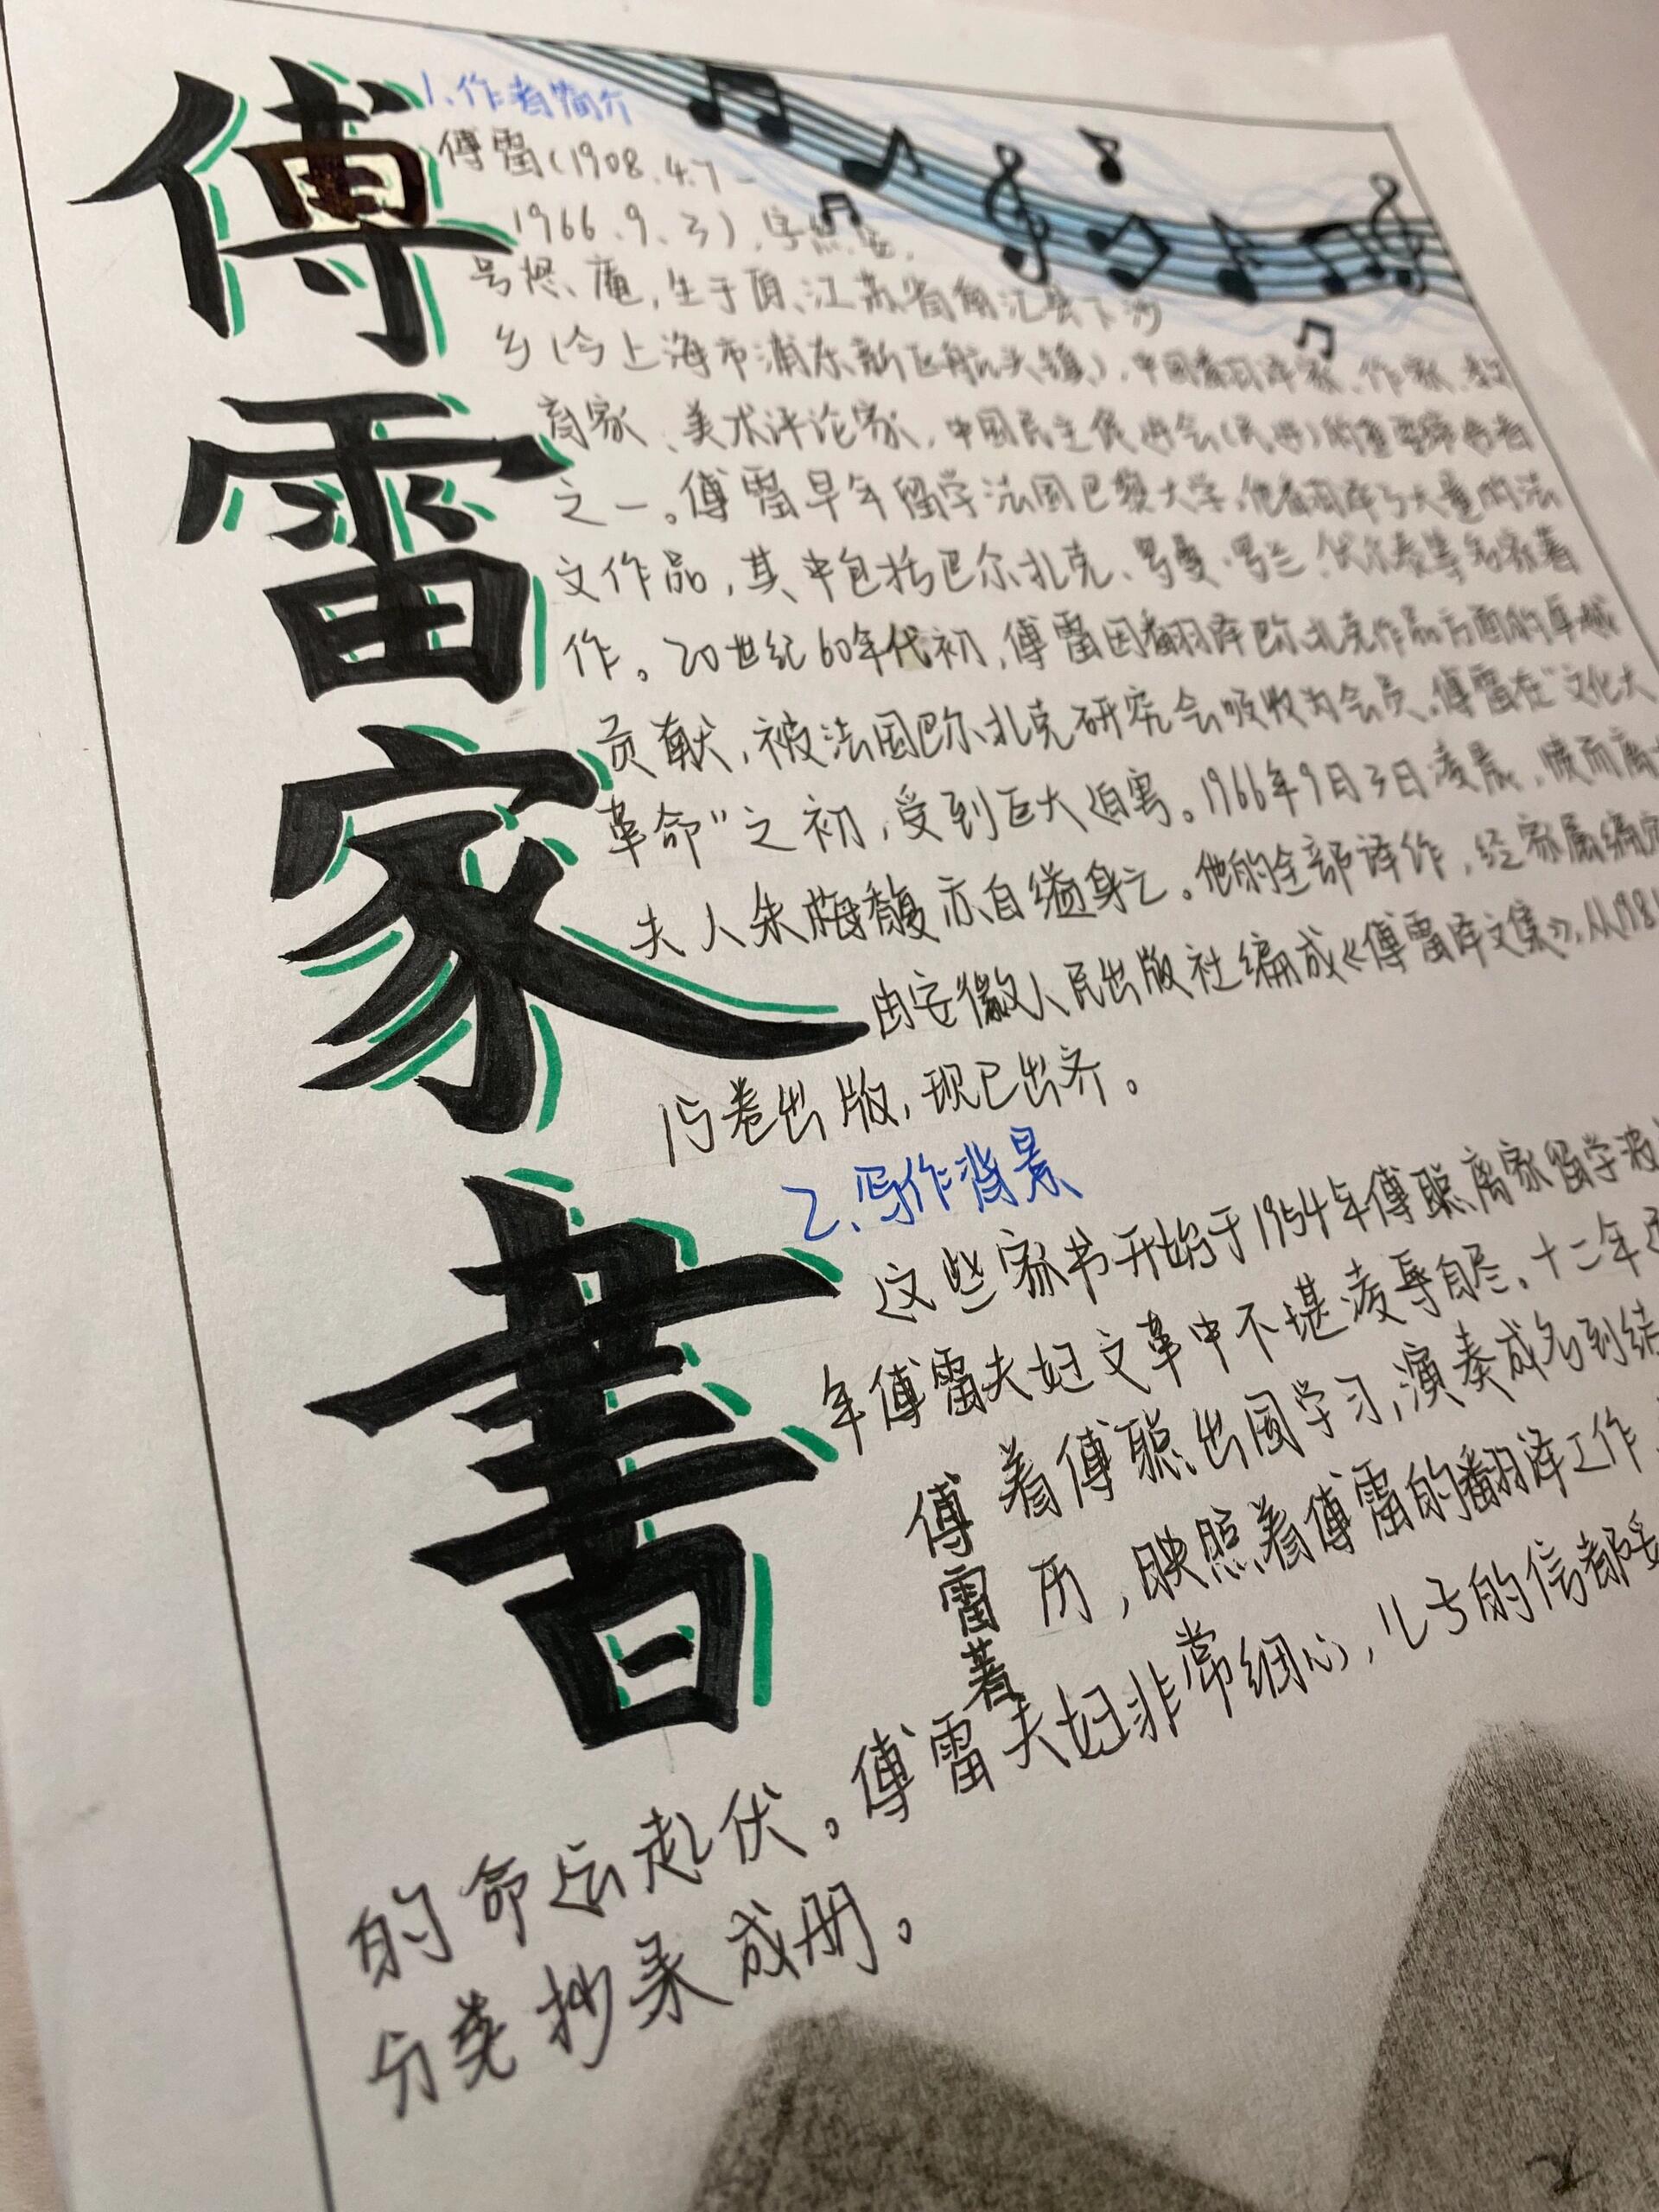 傅雷家書
1、作者简介
傅雷(1908.4.7-
1966.9.3),字怒安,
号怒庵,生于原江苏省南汇县下沙
乡(今上海市浦东新区航头镇),中国翻译家、作家、教
育家、美术评论家,中国民主促进会(民进)的重要缔造者
之一。傅雷早年留学法国巴黎大学,他翻译了大量的法
文作品,其中包括巴尔扎克、罗曼·罗兰、伏尔泰等名家著
作。20世纪60年代初,傅雷因翻译巴尔扎克作品方面的卓越
贡献,被法国巴尔扎克研究会吸收为会员。傅雷在"文化大
革命"之初,受到巨大迫害。1966年9月3日凌晨,愤而离
夫人朱梅馥亦自缢身亡。他的全部译作,经家属编定
由安徽人民出版社编成《傅雷译文集》,从1981
15卷出版,现已出齐。
2、写作背景
这些家书开始于1954年傅聪离家留学波
年傅雷夫妇文革中不堪凌辱自尽。十二年
着傅聪出国学习,演奏成名到结
历,映照着傅雷的翻译工作
傅雷著
的命运起伏。傅雷夫妇非常细心,儿子的信都
分类抄录成册。